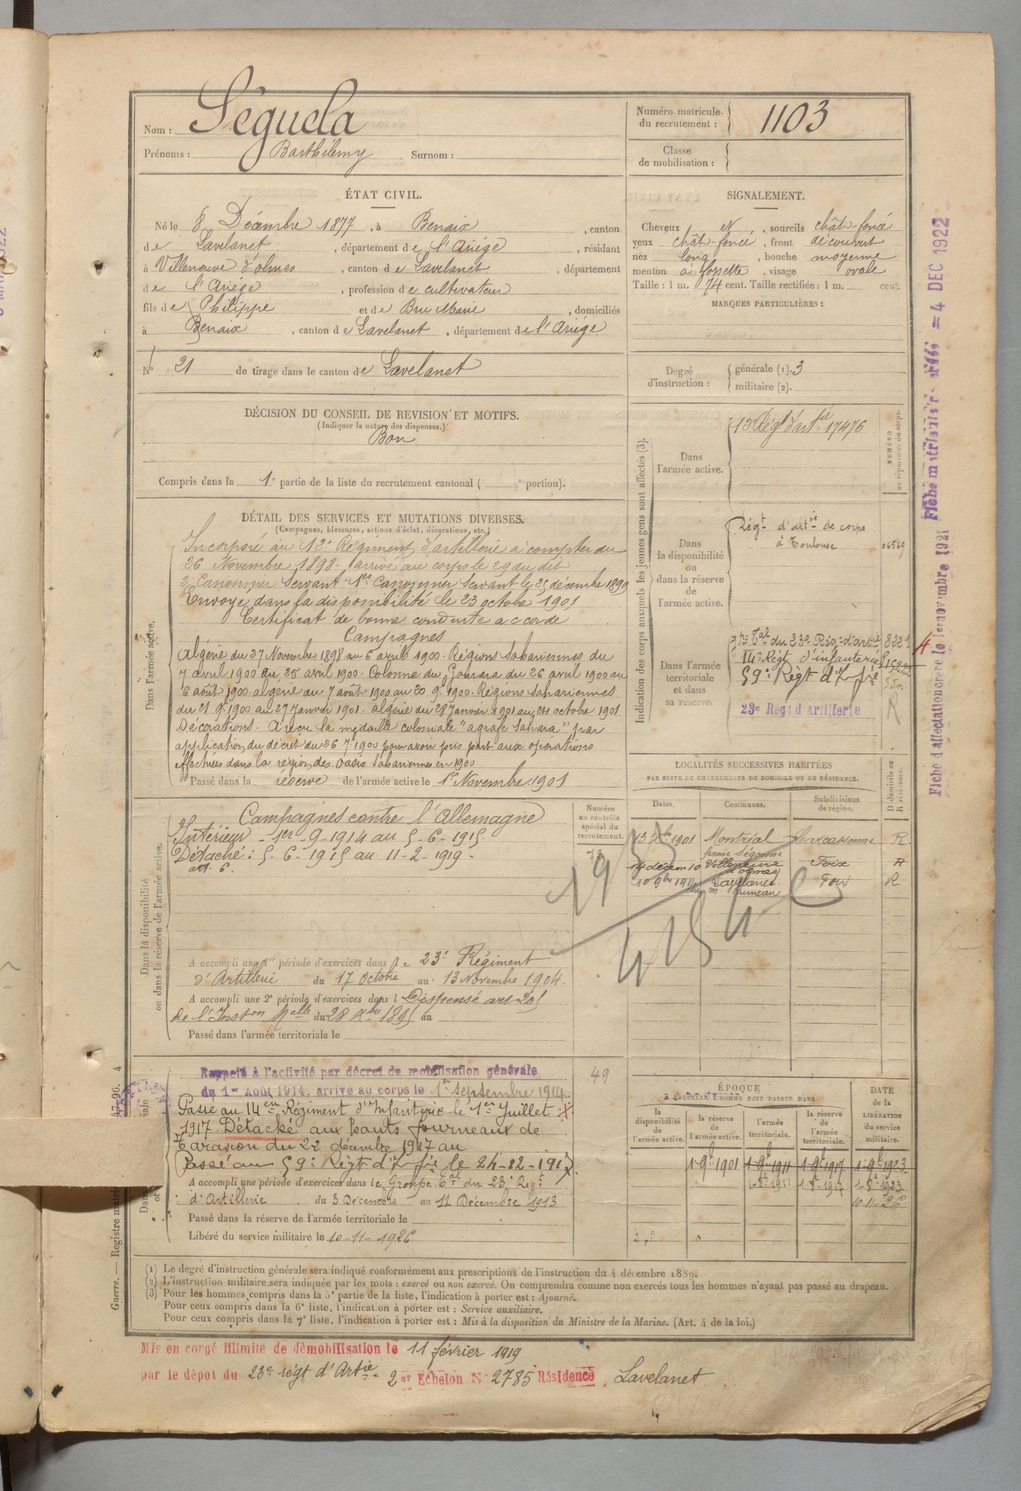 Nom : Séguela
Prénoms : Barthélemy Surnom :
Numéro matricule du recrutement : 1103
Classe de mobilisation :
ÉTAT CIVIL.
Né le 8 Décembre 1877, à Benaix, canton
de Lavelanet, département de l'Ariège, résidant
à Villeneuve d'olmes, canton de Lavelanet, département
de l'Ariège, profession de cultivateur
fils de Philippe et de Bru Marie, domiciliés
à Benaix, canton de Lavelanet, département de l'Ariège
N° 21 de tirage dans le canton de Lavelanet
SIGNALEMENT.
Cheveux et, sourcils chât-foncé
yeux chât-foncé, front découvert
nez long, bouche moyenne
menton à fossette, visage ovale
Taille : 1 m. 74 cent. Taille rectifiée : 1 m. cent.
MARQUES PARTICULIÈRES :
Degré d'instruction : générale (1). 3
militaire (2).
DÉCISION DU CONSEIL DE REVISION ET MOTIFS.
(Indiquer la nature des dispenses.)
Bon
Compris dans la 1e partie de la liste du recrutement cantonal ( portion).
DÉTAIL DES SERVICES ET MUTATIONS DIVERSES.
(Campagnes, blessures, actions d'éclat, décorations, etc.)
Dans l'armée active.
Incorporé au 13e Régiment d'artillerie à compter du
26 Novembre 1898, arrivé au corps le 29 du dit
2e Canonnier Servant 1er Canonnier Servant le 25 décembre 1899
Envoyé dans la disponibilité le 23 octobre 1901
Certificat de bonne conduite accordé
Campagnes
Algérie du 27 Novembre 1898 au 6 avril 1900. Régions Sahariennes du
7 avril 1900 du 25 avril 1900. Colonne du Gourara du 26 avril 1900 au
6 août 1900. algérie du 7 août 1900 au 20 9e 1900. Régions Sahariennes
du 21 9e 1900 au 27 janvier 1901. algérie du 28 janvier 1901 au 21 octobre 1901
Décorations. A reçu la médaille coloniale "agrafe Sahara" par
application du décret du 26 7e 1900 pour avoir pris part aux opérations
effectuées dans la région des Oasis Sahariennes en 1900
Passé dans la réserve de l'armée active le 1er Novembre 1901
Indication des corps auxquels les jeunes gens sont affectés (3).
NUMÉRO au répertoire du corps.
Dans l'armée active.
13e Régt d'artie 17476
Dans la disponibilité ou dans la réserve de l'armée active.
Régt d'artie de corps
à Toulouse
Dans l'armée territoriale et dans sa réserve.
gpe Tal du 23e Régt d'artie
14e Régt d'infanterie
59e Régt d'Infie
23e Régt d'Artillerie
LOCALITÉS SUCCESSIVES HABITÉES
PAR SUITE DE CHANGEMENTS DE DOMICILE OU DE RÉSIDENCE.
Dates. Communes. Subdivisions de région. D. domicile ou R. résidence.
1901 Montréal Carcassonne R
Villeneuve d'olmes Foix R
Lavelanet Foix R
Dans la disponibilité ou dans la réserve de l'armée active.
Numéro au contrôle spécial du recrutement.
Campagnes contre l'Allemagne
Intérieur - 1er-9-1914 au 5-6-1915
Détaché : 5-6-1915 au 11-2-1919.
art. 6.
A accompli une 1re période d'exercices dans le 23e Régiment
d'Artillerie du 17 Octobre au 13 Novembre 1904.
A accompli une 2e période d'exercices dans l Dispensé art 201
de l'Inston Melle du 28 Xbre 1895 au
Passé dans l'armée territoriale le
Rappelé à l'activité par décret de mobilisation générale
du 1er Août 1914, arrivé au corps le 1er Septembre 1914
49
Passé au 14eme Régiment d'Infanterie le 1er Juillet
1917 Détaché aux hauts fourneaux de
Tarascon du 22 décembre 1917 au
Passé au 59e Régt d'Infie le 24-12-1917
A accompli une période d'exercices dans le Groupe Tal du 23e Régt
d'Artillerie du 3 Décembre au 11 Décembre 1913
Passé dans la réserve de l'armée territoriale le
Libéré du service militaire le 10-11-1926
ÉPOQUE
À LAQUELLE L'HOMME DOIT PASSER DANS
la disponibilité de l'armée active. la réserve de l'armée active. l'armée territoriale. la réserve de l'armée territoriale. DATE de la LIBÉRATION du service militaire.
1-9e 1901 1-9e 1911 1-9e 1917 1-9e 1923
10-11-26
(1) Le degré d'instruction générale sera indiqué conformément aux prescriptions de l'instruction du 4 décembre 1889.
(2) L'instruction militaire sera indiquée par les mots : exercé ou non exercé. On comprendra comme non exercés tous les hommes n'ayant pas passé au drapeau.
(3) Pour les hommes compris dans la 5e partie de la liste, l'indication à porter est : Ajourné.
Pour ceux compris dans la 6e liste, l'indication à porter est : Service auxiliaire.
Pour ceux compris dans la 7e liste, l'indication à porter est : Mis à la disposition du Ministre de la Marine. (Art. 4 de la loi.)
Mis en congé illimité de démobilisation le 11 février 1919
par le dépôt du 23e régt d'Artie 2e Echelon N° 2785 Résidence Lavelanet
4 DEC 1922